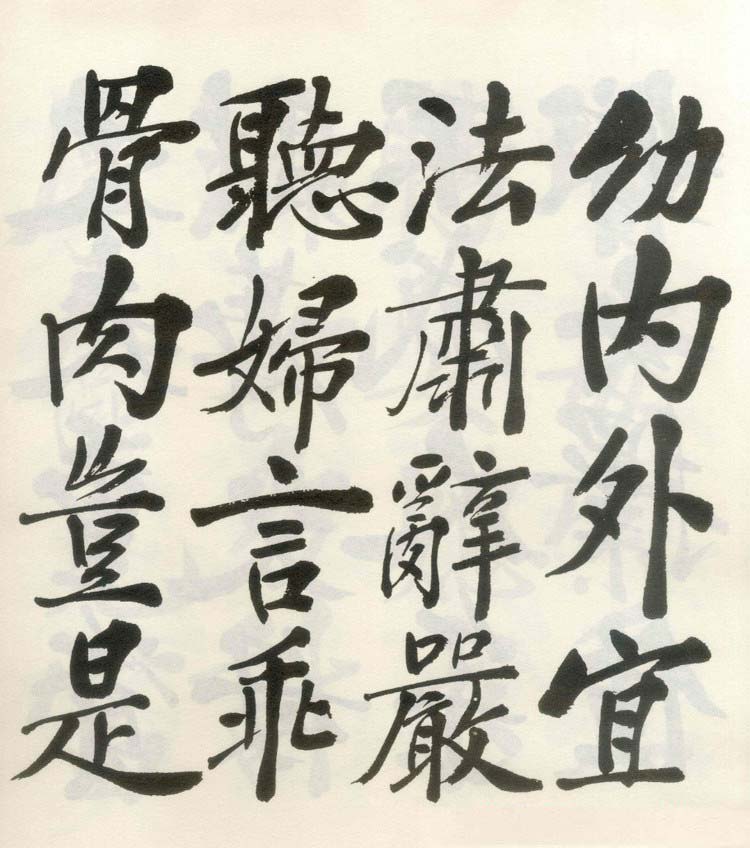 幼内外宜
法肅辭嚴
聽婦言乖
骨肉豈是